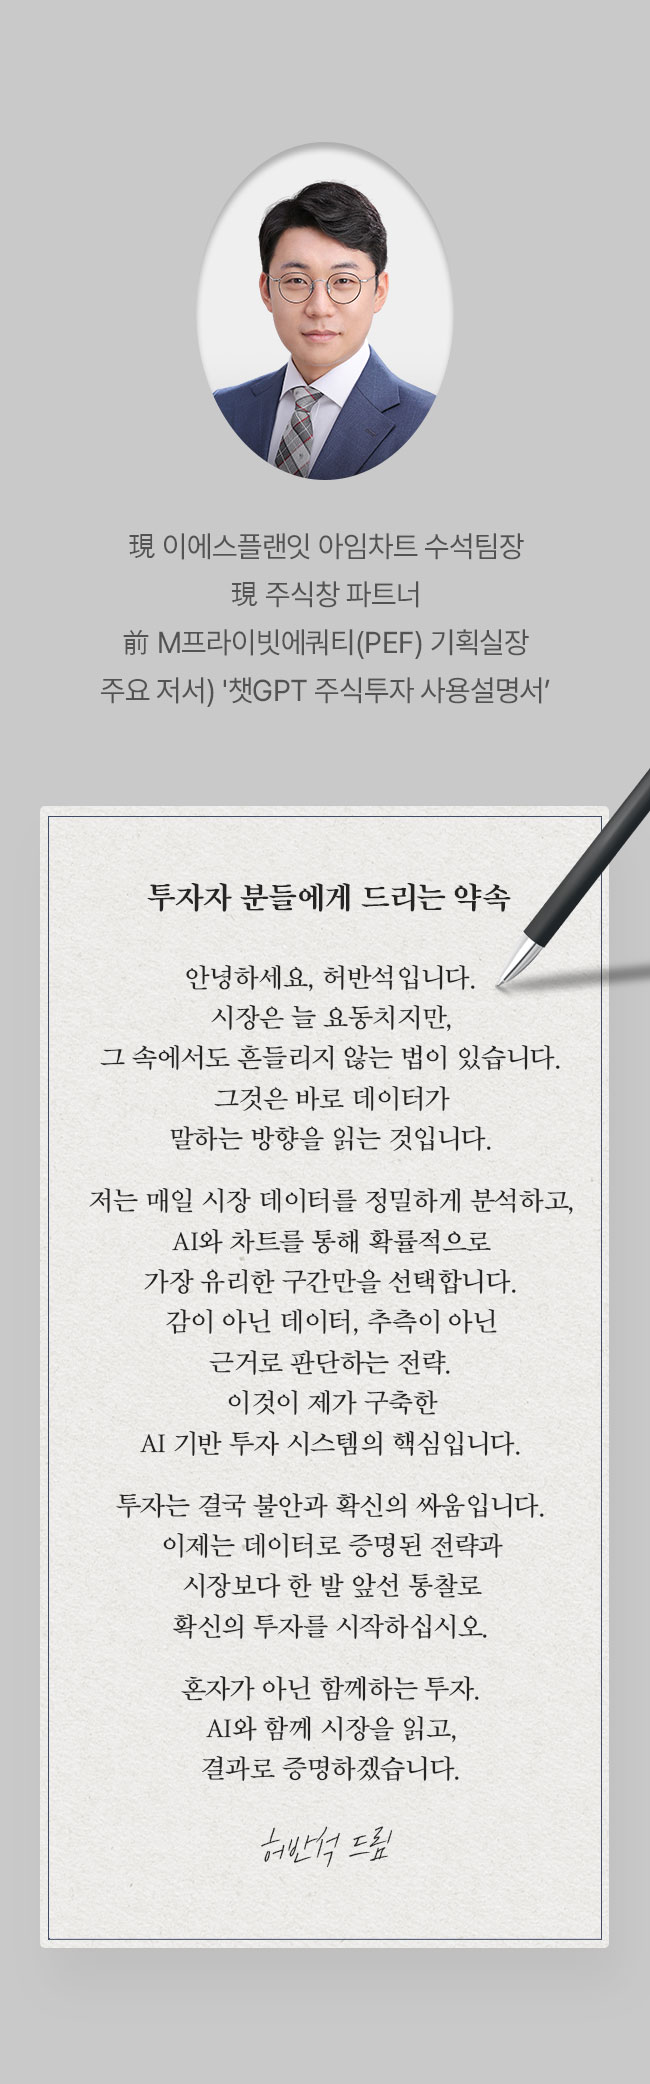 現 이에스플랜잇 아임차트 수석팀장
現 주식창 파트너
前 M프라이빗에쿼티(PEF) 기획실장
주요 저서) '챗GPT 주식투자 사용설명서’
투자자 분들에게 드리는 약속
안녕하세요, 허반석입니다.
시장은 늘 요동치지만,
그 속에서도 흔들리지 않는 법이 있습니다.
그것은 바로 데이터가
말하는 방향을 읽는 것입니다.
저는 매일 시장 데이터를 정밀하게 분석하고,
AI와 차트를 통해 확률적으로
가장 유리한 구간만을 선택합니다.
감이 아닌 데이터, 추측이 아닌
근거로 판단하는 전략.
이것이 제가 구축한
AI 기반 투자 시스템의 핵심입니다.
투자는 결국 불안과 확신의 싸움입니다.
이제는 데이터로 증명된 전략과
시장보다 한 발 앞선 통찰로
확신의 투자를 시작하십시오.
혼자가 아닌 함께하는 투자.
AI와 함께 시장을 읽고,
결과로 증명하겠습니다.
허반석 드림